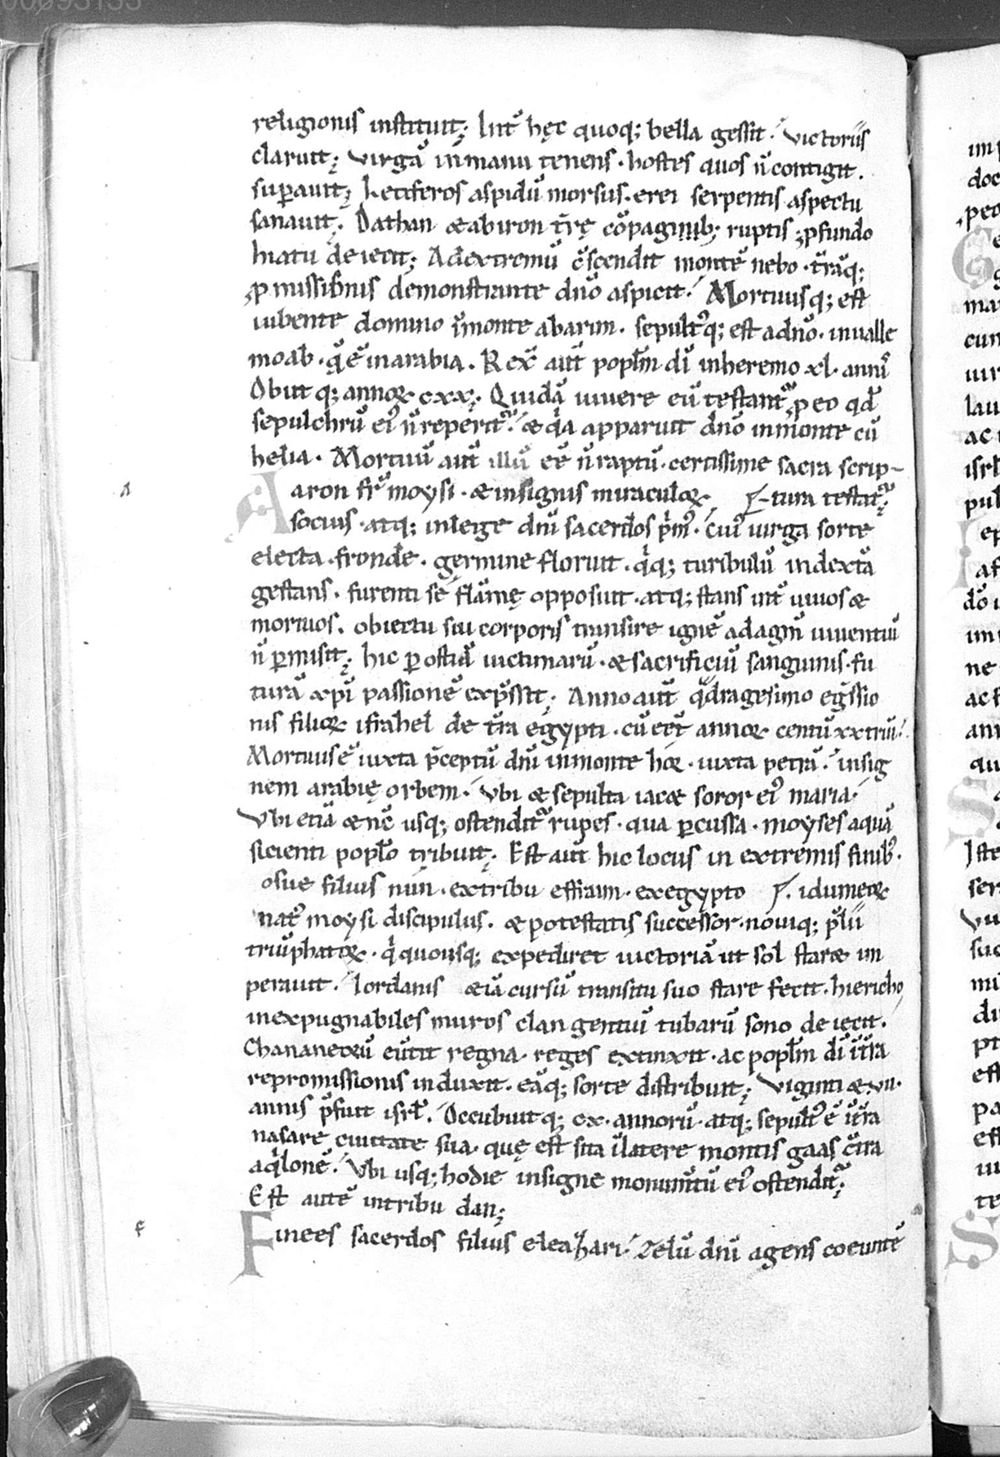 religionis instituit; Int̄ hęc quoq; bella gessit. victoriis
claruit; virgā inmanu tenens. hostes quos n̄ contigit.
sup̄auit; Letiferos aspidū morsus. erei serpentis aspectu
sanauit. Dathan & abiron t̄rę cōpaginib; ruptis; p̱fundo
hiatu deiecit; Adextremū c̄scendit montē nebo. t̄raq;
p̱missionis demonstrante dn̄o aspicit. Mortuusq; est
iubente domino īmonte abarim. sepultꝰq; est adn̄o. inualle
moab. q̄ ē inarabia. Rex̄ aut̄ popl̄m dī inheremo xl. annꝭ
Obiit q; annoꝝ cxx; Quidā uiuere eū testant᷑; p̱ eo qd̄
sepulchrū eiꝰ n̄ reperit᷑. & q̄a apparuit dn̄o inmonte cū
helia. Mortuū aut̄ illū ēē n̄ raptū. certissime sacra scrip-
Aaron fr̄ moysi. & insignis miraculoꝝ tura testat᷑;
socius. atq; inlege dn̄i sacerdos p̄mꝰ. cuiꝰ uirga sorte
electa. fronde. germine floruit. q̄q; turibulū indextā
gestans. furenti sę flāmę opposuit. atq; stans int̄ uiuos &
mortuos. obiectu sui corporis transire ignē ad agm̄ uiuentiū
n̄ p̱misit; hic p̱ ostiā uictimarū. & sacrificiū sanguinis. fu
turā xp̄i passionē exp̄ssit; Anno aut̄ q̄dragesimo eḡssio
nis filioꝝ israhel de t̄ra egypti. cū eēt annoꝝ centū xxtriū.
Mortuus ē iuxta p̄ceptū dn̄i inmonte hor. iuxta petrā. insig
nem arabię orbem. Vbi & sepulta iacet soror eiꝰ maria.
Vbi etiā & nc̄ usq; ostendit᷑ rupes. qua p̱cussa. moyses aquā
sicienti poplo tribuit; Est aut̄ hic locus in extremis finibꝰ.
osue filius nun. extribu effraim. exegypto idumeoꝝ
natꝰ moysi discipulus. & potestatis successor. nouiq; p̄lii
triūphatoꝝ. q̄ quousq; expediret uictoriā ut sol staret im
perauit. Iordanis &iā cursū transitu suo stare fecit. hiericho
inexpugnabiles muros clangentiū tubarū sono deiecit.
Chananeorū eūtit regna. reges extinxit. ac popl̄m dī īt̄ra
repromissionis induxit. eāq; sorte distribuit; Viginti & vii.
annis p̄fuit isrl̄. Occubuit q; cx. annorū. atq; sepultꝰ ē īt̄ra
nasare ciuitate sua. quę est sita īlatere montis gaas c̄tra
aq̄lonē. Vbi usq; hodie insigne monum̄tū eiꝰ ostendit᷑;
Est autē intribu dan;
Finees sacerdos filius eleazari. Zelū dn̄i agens coeuntē